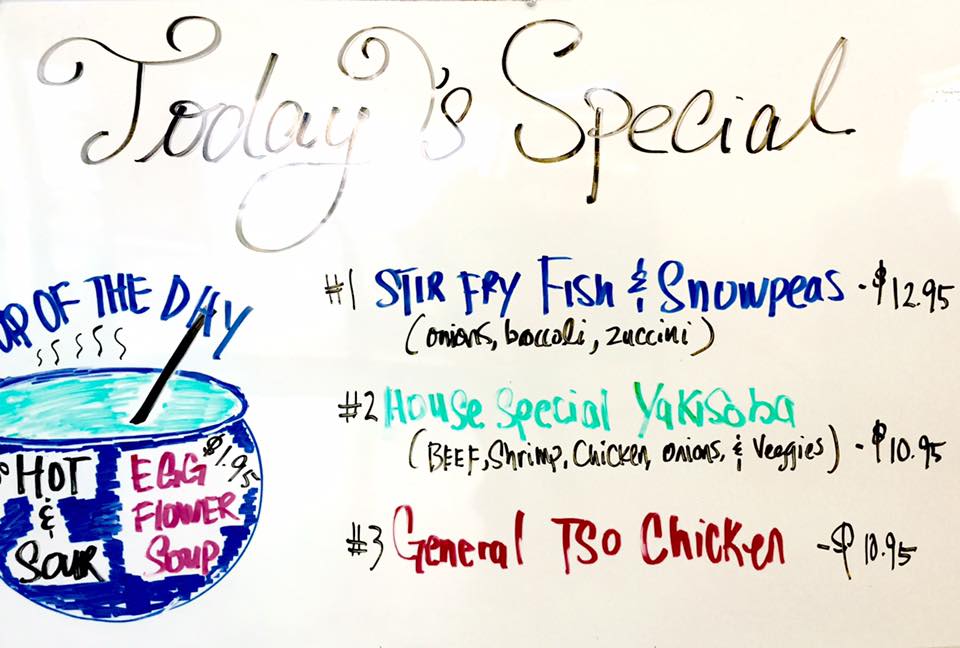 Today's Special
#1 STIR FRY Fish & Snowpeas - $12.95
(onions, broccoli, zuccini)
#2 House Special Yakisoba
(BEEF, Shrimp, Chicken, onions, & Veggies) - $10.95
#3 General TSO Chicken - $10.95
OF THE DAY
$1.95
HOT
&
Sour
EGG
FLOWER
SOUP